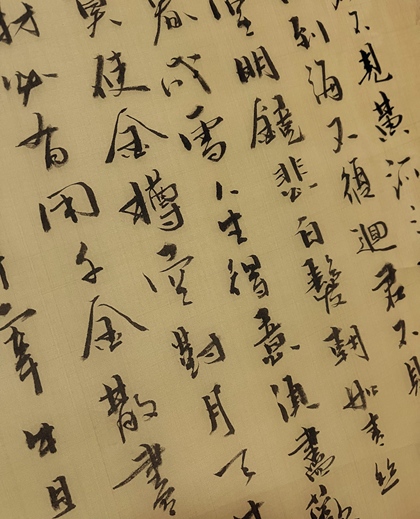 不見黃河之
到海不復迴君不見
堂明鏡悲白髮朝如青絲
暮成雪人生得意須盡歡
莫使金樽空對月天生
材必有用千金散盡
宰牛且